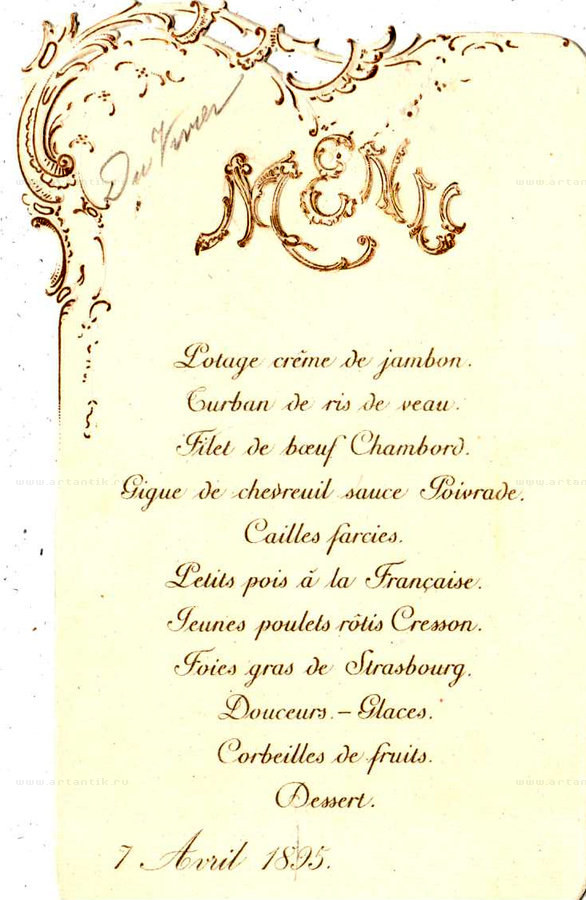 Du Vivier
MENU
Potage crême de jambon.
Turban de ris de veau.
Filet de bœuf Chambord.
Gigue de chevreuil sauce Poivrade.
Cailles farcies.
Petits pois à la Française.
Jeunes poulets rôtis Cresson.
Foies gras de Strasbourg.
Douceurs. – Glaces.
Corbeilles de fruits.
Dessert.
7 Avril 1895.
www.artantik.ru